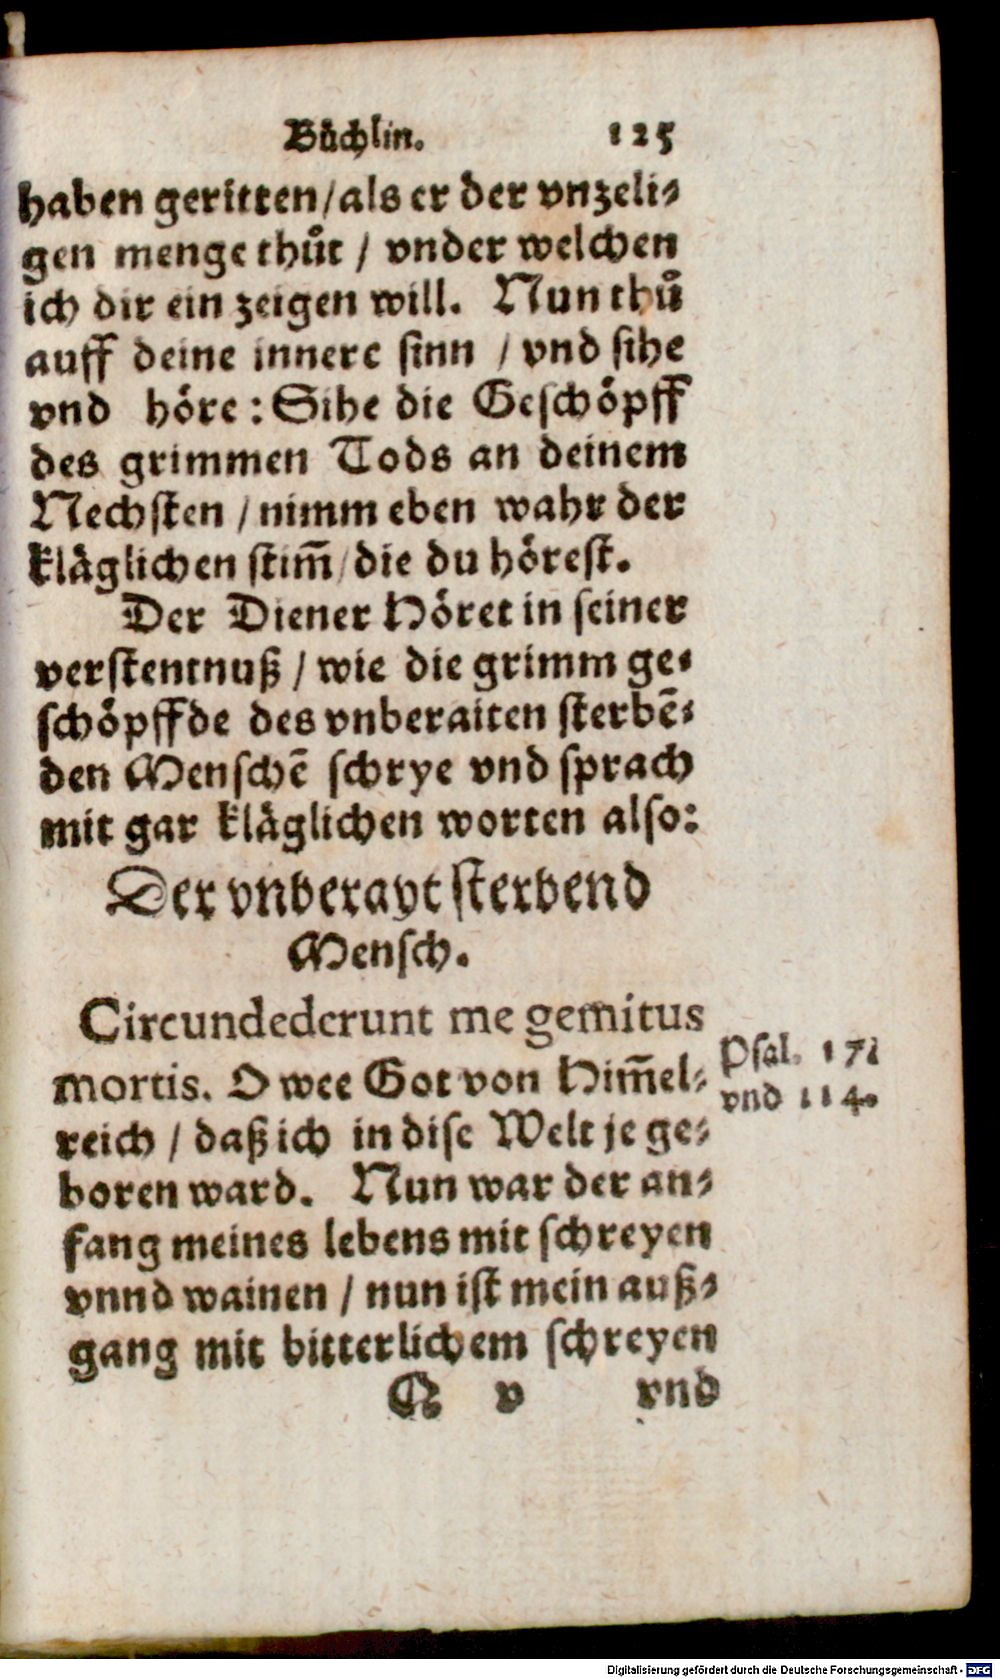 Büchlin. 125
haben geritten / als er der vnzeli⸗
gen menge thůt / vnder welchen
ich dir ein zeigen will. Nun thů
auff deine innere sinn / vnd sihe
vnd höre: Sihe die Geschöpff
des grimmen Tods an deinem
Nechsten / nimm eben wahr der
kläglichen stim̃ / die du hörest.
Der Diener Höret in seiner
verstentnuß / wie die grimm ge⸗
schöpffde des vnberaiten sterbẽ⸗
den Menschẽ schrye vnd sprach
mit gar kläglichen worten also:
Der vnberayt sterbend
Mensch.
Circundederunt me gemitus
mortis. O wee Got von Him̃el⸗
reich / daß ich in dise Welt je ge⸗
boren ward. Nun war der an⸗
fang meines lebens mit schreyen
vnnd wainen / nun ist mein auß⸗
gang mit bitterlichem schreyen
Psal. 17.
vnd 114.
Q v vnd
Digitalisierung gefördert durch die Deutsche Forschungsgemeinschaft - DFG